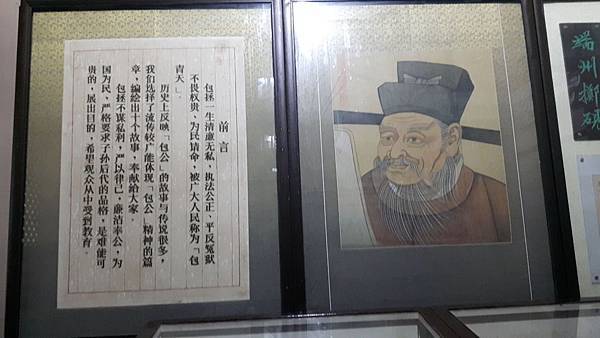 前言
包拯一生清廉无私、执法公正、平反冤狱
不畏权贵、为民请命，被广大人民称为「包
青天」。
历史上反映「包公」的故事与传说很多，
我们选择了流传较广能体现「包公」精神的篇
章，编绘出十个故事，奉献给大家。
包拯不谋私利，严以律己，廉洁奉公，为
国为民、严格要求子孙后代的品格，是难能可
贵的，展出目的，希望观众从中受到教育。
端州掷砚